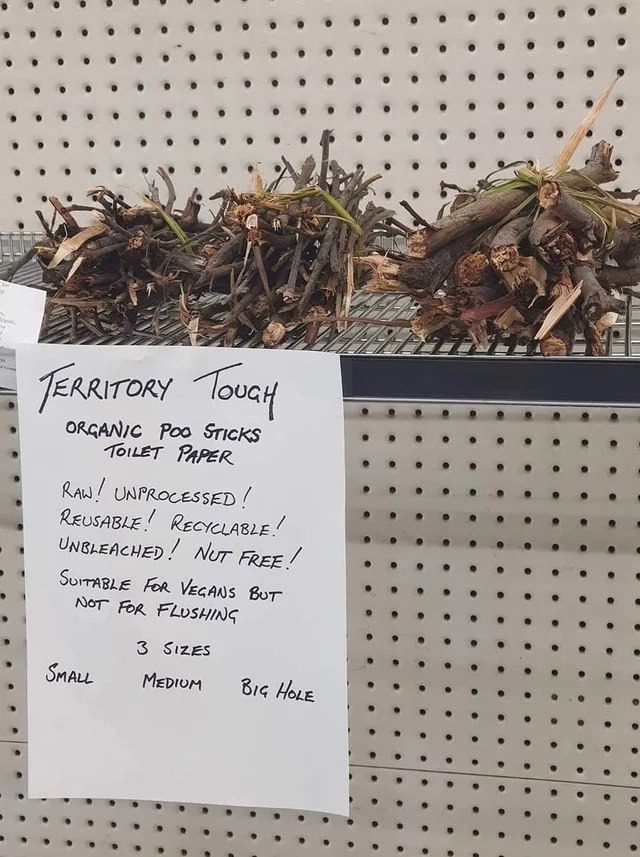 TERRITORY TOUGH
ORGANIC POO STICKS
TOILET PAPER
RAW! UNPROCESSED!
REUSABLE! RECYCLABLE!
UNBLEACHED! NUT FREE!
SUITABLE FOR VEGANS BUT
NOT FOR FLUSHING
3 SIZES
SMALL MEDIUM BIG HOLE